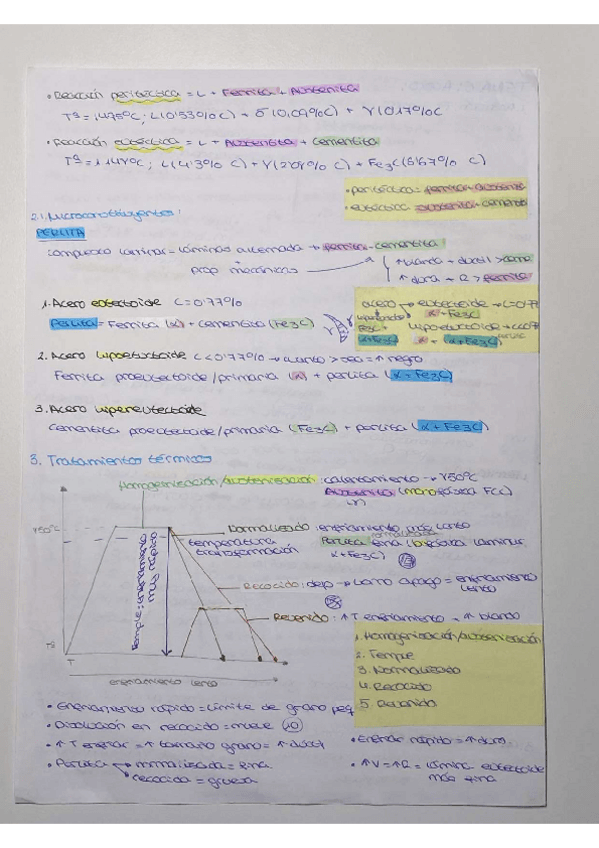 • Reacción peritéctica = L + Ferrita + Austenita
Tª = 1495ºC ; L (0'53% C) + δ (0,09% C) + γ (0'17% C
• Reacción eutéctica = L + Austenita + Cementita
Tª = 1148ºC ; L (4'3% C) + γ (2'08% C) + Fe3C (6'67% C)
• peritéctica = ferrita + austenita
• eutéctica = austenita + cementita
2.1. Microconstituyentes:
PERLITA
Compuesto laminar = láminas alternada → ferrita - cementita
prop mecánicas
↑ blanda + ductil >
↑ dura + R >
1. Acero eutectoide C = 0'77%
Perlita = Ferrita (α) + cementita (Fe3C)
acero → eutectoide → C = 0'77
α + Fe3C
Fe3C
hipoeutectoide →
α + (α+Fe3C)
2. Acero hipoeutectoide C < 0'77% → cuanto > sea = ↑ negro
Ferrita proeutectoide/primaria (α) + perlita (α + Fe3C)
3. Acero hipereutectoide
Cementita proeutectoide/primaria (Fe3C) + perlita (α + Fe3C)
3. Tratamientos térmicos
Homogenización/austenización: calentamiento →
Austenita (monofásica FCC)
Normalizado: enfriamiento más lento
normalizada
Perlita fina (bifásica laminar
α + Fe3C)
temperatura
transformación
Temple: enfriamiento
muy rápido
Recocido: dejo → horno apago = enfriamiento
lento
Revenido: ↑ T enfriamiento → ↑ blando
Tª
T
enfriamiento lento
1. Homogenización/austenización
2. Temple
3. Normalizado
4. Recocido
5. Revenido
• Enfriamiento rápido = límite de grano peq
• Disolución en recocido = mueve
• ↑ T enfriar = ↑ tamaño grano = ↑ dúctil
• Enfriar rápido = ↑ dura
• Perlita → normalizada = fina
recocida = gruesa
• ↑ V = ↑ R = lámina eutectoide
más fina